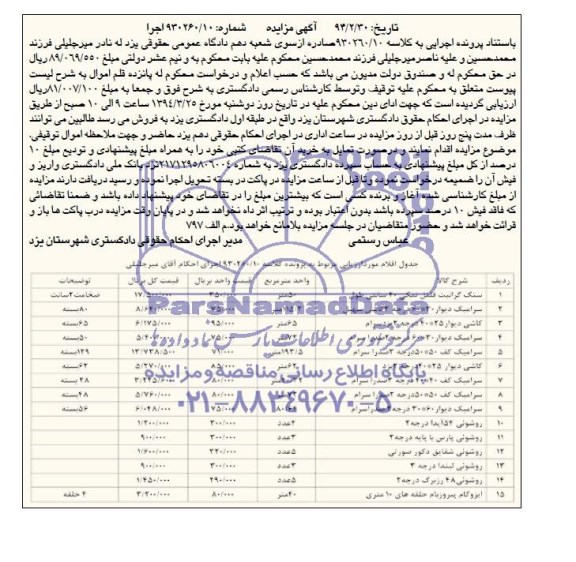 تاریخ: ۹۴/۲/۳۰ آگهی مزایده شماره: ۹۳۰۲۶۰/۱۰ اجرا
باستناد پرونده اجرایی به کلاسه ۹۳۰۲۶۰/۱۰صادره ازسوی شعبه دهم دادگاه عمومی حقوقی یزد له نادر میرجلیلی فرزند
محمدحسین و علیه ناصرمیرجلیلی فرزند محمدحسین محکوم علیه بابت محکوم به و نیم عشر دولتی مبلغ ۸۹/۰۶۹/۵۵۰ ریال
در حق محکوم له و صندوق دولت مدیون می باشد که حسب اعلام و درخواست محکوم له پانزده قلم اموال به شرح لیست
پیوست متعلق به محکوم علیه توقیف وتوسط کارشناس رسمی دادگستری به شرح فوق و جمعا به مبلغ ۸۱/۰۰۷/۱۰۰ریال
ارزیابی گردیده است که جهت ادای دین محکوم علیه در تاریخ روز دوشنبه مورخ ۱۳۹۴/۳/۲۵ ساعت ۹ الی ۱۰ صبح از طریق
مزایده در اجرای احکام حقوق دادگستری شهرستان یزد واقع در طبقه اول دادگستری یزد به فروش می رسد طالبین می توانند
ظرف مدت پنج روز قبل از روز مزایده در ساعت اداری در اجرای احکام حقوقی دهم یزد حاضر و جهت ملاحظه اموال توقیفی،
موضوع مزایده اقدام نمایند و درصورت تمایل به خرید آن تقاضای کتبی خود را به همراه مبلغ پیشنهادی و تودیع مبلغ ۱۰
درصد از کل مبلغ پیشنهادی به حساب سپرده دادگستری یزد به شماره ۲۱۷۱۲۹۵۸۰۶۰۰۴نزد بانک ملی دادگستری واریز و
فیش آن را ضمیمه درخواست نموده وتا قبل از ساعت مزایده در پاکت در بسته تحویل اجرا نموده و رسید دریافت دارند مزایده
از مبلغ کارشناسی شده آغاز و برنده کسی است که بیشترین مبلغ را در تقاضای خود پیشنهاد داده باشد و ضمنا تقاضائی
که فاقد فیش ۱۰ درصد سپرده باشد بدون اعتبار بوده و ترتیب اثر داده نخواهد شد و در پایان وقت مزایده درب پاکت ها باز و
قرائت خواهد شد و حضور متقاضیان در جلسه مزایده بلامانع خواهد بود.م الف ۷۹۷
عباس رستمی مدیر اجرای احکام حقوقی دادگستری شهرستان یزد
جدول اقلام موردارزیابی مربوط به پرونده کلاسه ۹۳۰۲۶۰/۱۰ اجرای احکام آقای میرجلیلی
ردیف شرح کالا واحد مترمربع قیمت واحد بریال قیمت کل بریال توضیحات
۱ سنگ گرانیت ۵۰متر ۳۵۰/۰۰۰ ۱۷/۵۰۰/۰۰۰ ضخامت۲سانت
۲ سرامیک دیوار ۸۰بسته
۳ کاشی دیوار ۶۵متر ۹۵/۰۰۰ ۶/۱۷۵/۰۰۰ ۶۵بسته
۴ سرامیک دیوار ۵۰بسته
۵ سرامیک کف ۱۹۳/۵متر ۷۱/۰۰۰ ۱۳/۷۳۸/۵۰۰ ۱۲۹بسته
۶ کاشی دیوار ۶۲متر ۸۵/۰۰۰ ۵/۲۷۰/۰۰۰ ۶۲بسته
۷ سرامیک کف ۲۸ بسته
۸ سرامیک کف ۸۰/۰۰۰ ۵/۷۶۰/۰۰۰ ۴۸بسته
۹ سرامیک دیوار ۶۰*۳۰ درجه ۷۵/۰۰۰ ۶/۰۴۸/۰۰۰ ۵۶بسته
۱۰ روشوئی ۵۴آیدا درجه۲ ۴عدد ۳۰۰/۰۰۰ ۱/۲۰۰/۰۰۰
۱۱ روشوئی پارس با پایه درجه۲ ۳عدد ۳۰۰/۰۰۰ ۹۰۰/۰۰۰
۱۲ روشوئی شقایق دکور صورتی ۵عدد ۳۲۰/۰۰۰ ۱/۶۰۰/۰۰۰
۱۳ روشوئی لیندا درجه ۳ ۳عدد ۳۰۰/۰۰۰ ۹۰۰/۰۰۰
۱۴ روشوئی۴۸ رزبرگ درجه۲ ۵عدد ۲۹۰/۰۰۰ ۱/۴۵۰/۰۰۰
۱۵ ایزوگام پیروزبام حلقه های ۱۰ متری ۴۰متر ۸۰/۰۰۰ ۳/۲۰۰/۰۰۰ ۴ حلقه
ParsNamadData
پایگاه اطلاع رسانی مناقصه و مزایده
۰۲۱-۸۸۳۴۹۶۷۰-۵